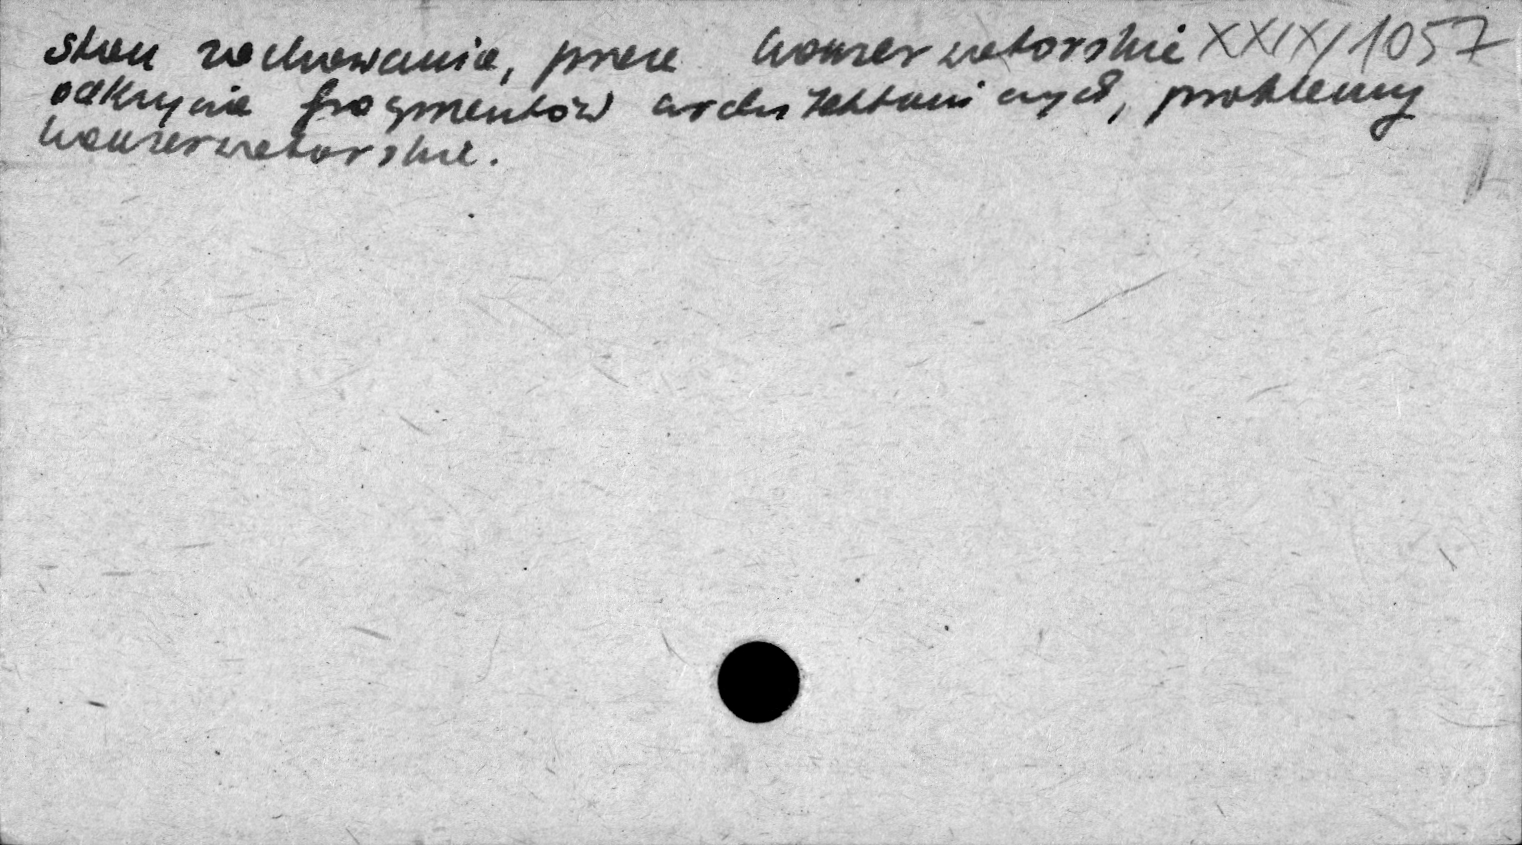 stan zachowania, prace konserwatorskie XXIX/1057
odkrycie fragmentów architektonicznych, problemy
konserwatorskie.